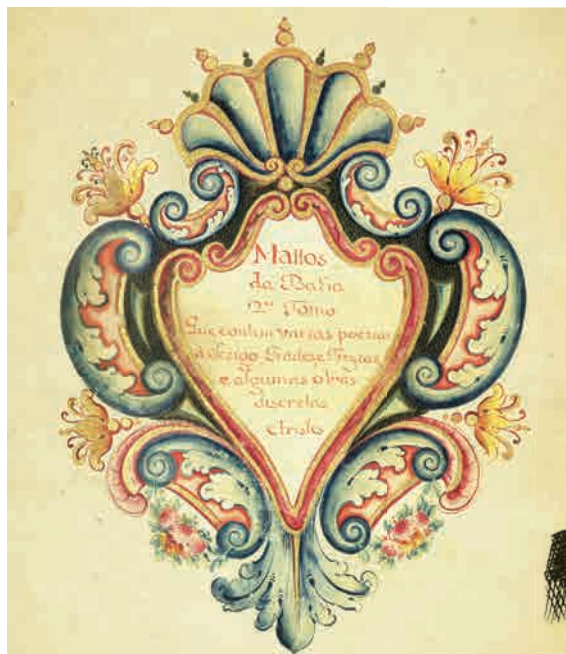 Mattos
da Bahia
2º Tomo
Que contem varias poesias
a Clerigo, Frades, e Freyras
e algumas obras
discretas
e tristes